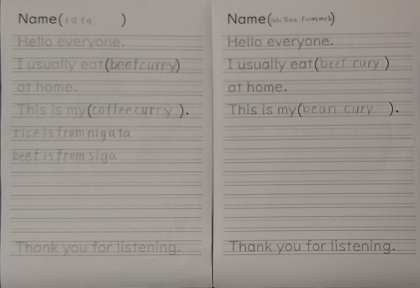 Name( )
Hello everyone.
I usually eat(beefcurry)
at home.
This is my(coffeecurry ).
rice is from nigata
beef is from siga
Thank you for listening.
Name( )
Hello everyone.
I usually eat(beef cury )
at home.
This is my(bean cury ).
Thank you for listening.